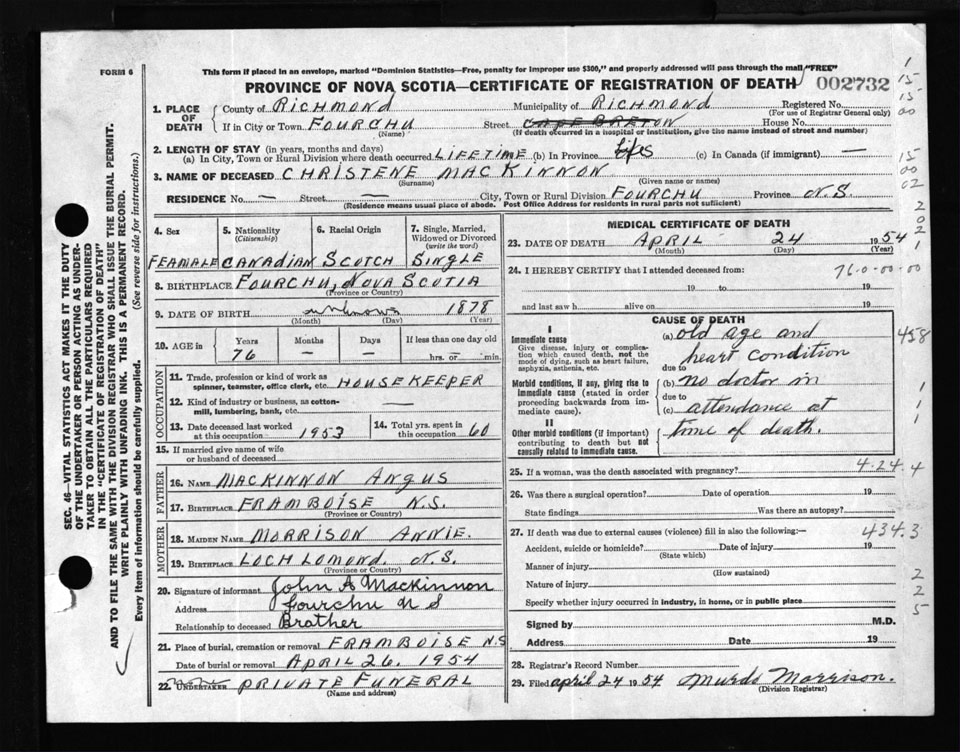 FORM 6
This form if placed in an envelope, marked "Dominion Statistics—Free, penalty for improper use $300," and properly addressed will pass through the mail "FREE"
PROVINCE OF NOVA SCOTIA—CERTIFICATE OF REGISTRATION OF DEATH 002732
1. PLACE OF DEATH County of RICHMOND Municipality of RICHMOND Registered No.
(For use of Registrar General only)
If in City or Town FOURCHU Street CAPE BRETON House No.
(Name) (If death occurred in a hospital or institution, give the name instead of street and number)
2. LENGTH OF STAY (in years, months and days)
(a) In City, Town or Rural Division where death occurred LIFETIME (b) In Province (c) In Canada (if immigrant) —
3. NAME OF DECEASED CHRISTENE MACKINNON
(Surname) (Given name or names)
RESIDENCE No. — Street — City, Town or Rural Division FOURCHU Province N.S.
(Residence means usual place of abode. Post Office Address for residents in rural parts not sufficient)
4. Sex FEAMALE
5. Nationality (Citizenship) CANADIAN
6. Racial Origin SCOTCH
7. Single, Married, Widowed or Divorced (write the word) SINGLE
8. BIRTHPLACE FOURCHU, NOVA SCOTIA
(Province or Country)
9. DATE OF BIRTH unknown 1878
(Month) (Day) (Year)
10. AGE in Years Months Days If less than one day old
76 — — hrs. or min.
OCCUPATION
11. Trade, profession or kind of work as spinner, teamster, office clerk, etc. HOUSEKEEPER
12. Kind of industry or business, as cotton-mill, lumbering, bank, etc. —
13. Date deceased last worked at this occupation 1953
14. Total yrs. spent in this occupation 60
15. If married give name of wife or husband of deceased
FATHER
16. NAME MACKINNON ANGUS
17. BIRTHPLACE FRAMBOISE N.S.
(Province or Country)
MOTHER
18. MAIDEN NAME MORRISON ANNIE.
19. BIRTHPLACE LOCH LOMOND. N.S.
(Province or Country)
20. Signature of informant John A Mackinnon
Address Fourchu N S
Relationship to deceased Brather
21. Place of burial, cremation or removal FRAMBOISE N.S
Date of burial or removal APRIL 26. 1954
22. UNDERTAKER PRIVATE FUNERAL
(Name and address)
MEDICAL CERTIFICATE OF DEATH
23. DATE OF DEATH APRIL 24 1954
(Month) (Day) (Year)
24. I HEREBY CERTIFY that I attended deceased from: 76-0-00-00
19 to 19
and last saw h alive on 19
CAUSE OF DEATH
I
Immediate cause
Give disease, injury or complication which caused death, not the mode of dying, such as heart failure, asphyxia, asthenia, etc.
(a) old age and
heart condition
due to
Morbid conditions, if any, giving rise to immediate cause (stated in order proceeding backwards from immediate cause).
(b) no doctor in
due to
(c) attendance at
time of death.
II
Other morbid conditions (if important) contributing to death but not causally related to immediate cause.
25. If a woman, was the death associated with pregnancy? 4-24.4
26. Was there a surgical operation? Date of operation 19
State findings Was there an autopsy?
27. If death was due to external causes (violence) fill in also the following:— 434.3
Accident, suicide or homicide? Date of injury 19
(State which)
Manner of injury
(How sustained)
Nature of injury
Specify whether injury occurred in industry, in home, or in public place
Signed by M.D.
Address Date 19
28. Registrar's Record Number
29. Filed april 24 1954 Murdo Morrison.
(Division Registrar)
1
15
15
00
15
00
02
2
0
2
1
458
1
1
2
2
5
SEC. 46—VITAL STATISTICS ACT MAKES IT THE DUTY
OF THE UNDERTAKER OR PERSON ACTING AS UNDERTAKER TO OBTAIN ALL THE PARTICULARS REQUIRED
IN THE "CERTIFICATE OF REGISTRATION OF DEATH"
AND TO FILE THE SAME WITH THE DIVISION REGISTRAR WHO SHALL ISSUE THE BURIAL PERMIT.
WRITE PLAINLY WITH UNFADING INK. THIS IS A PERMANENT RECORD.
Every item of information should be carefully supplied. (See reverse side for instructions.)